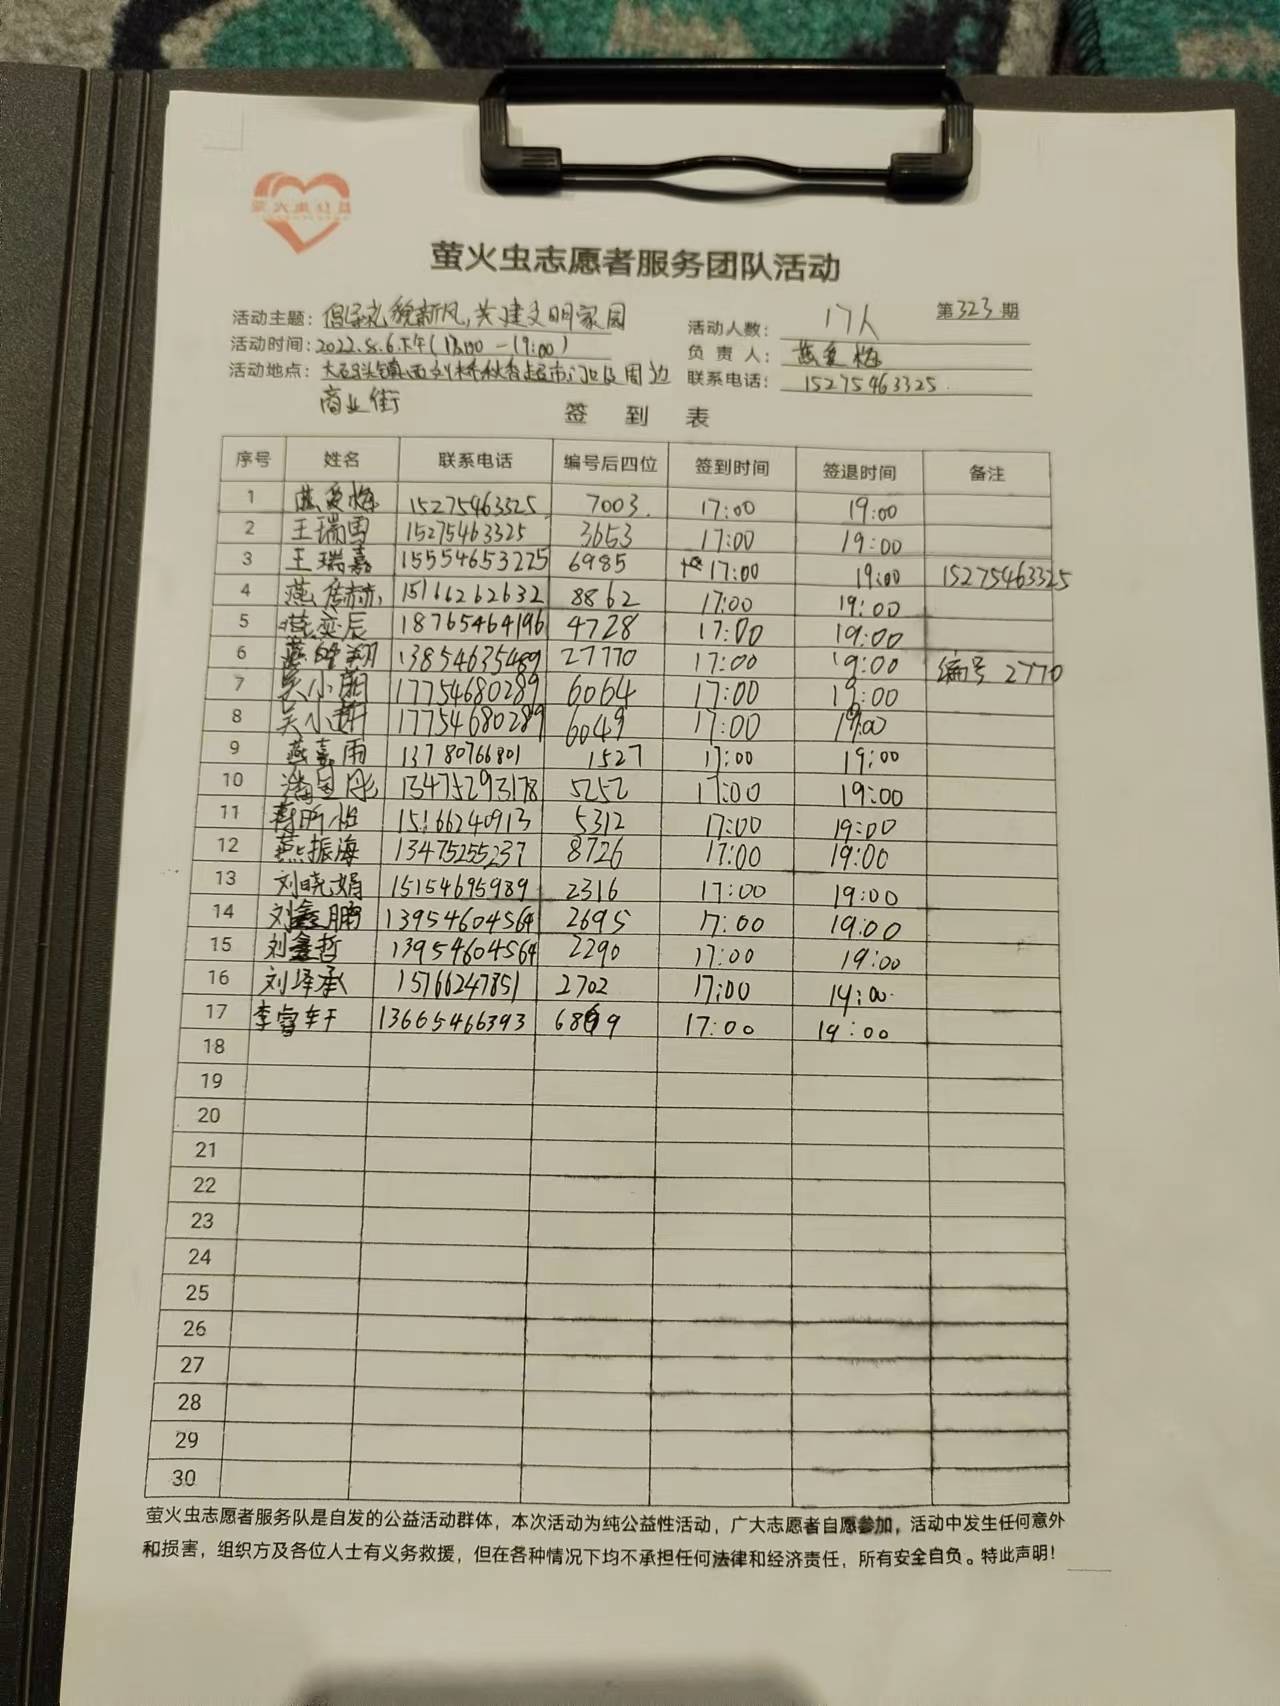 萤火虫公益
萤火虫志愿者服务团队活动
第323期
活动主题：倡导礼貌新风，共建文明家园
活动人数：17人
活动时间：2022.8.6.下午（17:00—19:00）
负责人：燕爱梅
活动地点：大码头镇西刘桥秋香超市门口及周边
商业街
联系电话：15275463325
签到表
序号 姓名 联系电话 编号后四位 签到时间 签退时间 备注
1 燕爱梅 15275463325 7003 17:00 19:00
2 王瑞雪 15275463325 3653 17:00 19:00
3 王瑞嘉 15554653225 6985 17:00 19:00 15275463325
4 燕 15166262632 8862 17:00 19:00
5 燕奕辰 18765464196 4728 17:00 19:00
6 燕 翔 13854635489 27770 17:00 19:00 编号 2770
7 吴小 17754680289 6064 17:00 19:00
8 吴小 17754680289 6049 17:00 19:00
9 燕嘉雨 13780766801 1527 17:00 19:00
10 潘 彤 13475293178 5252 17:00 19:00
11 昕怡 15166240913 5312 17:00 19:00
12 燕振海 13475255237 8726 17:00 19:00
13 刘晓娟 15154695989 2316 17:00 19:00
14 刘鑫鹏 13954604564 2695 17:00 19:00
15 刘鑫哲 13954604564 2290 17:00 19:00
16 刘泽承 15766247851 2702 17:00 19:00
17 李睿轩 13665466393 6899 17:00 19:00
18
19
20
21
22
23
24
25
26
27
28
29
30
萤火虫志愿者服务队是自发的公益活动群体，本次活动为纯公益性活动，广大志愿者自愿参加，活动中发生任何意外
和损害，组织方及各位人士有义务救援，但在各种情况下均不承担任何法律和经济责任，所有安全自负。特此声明！